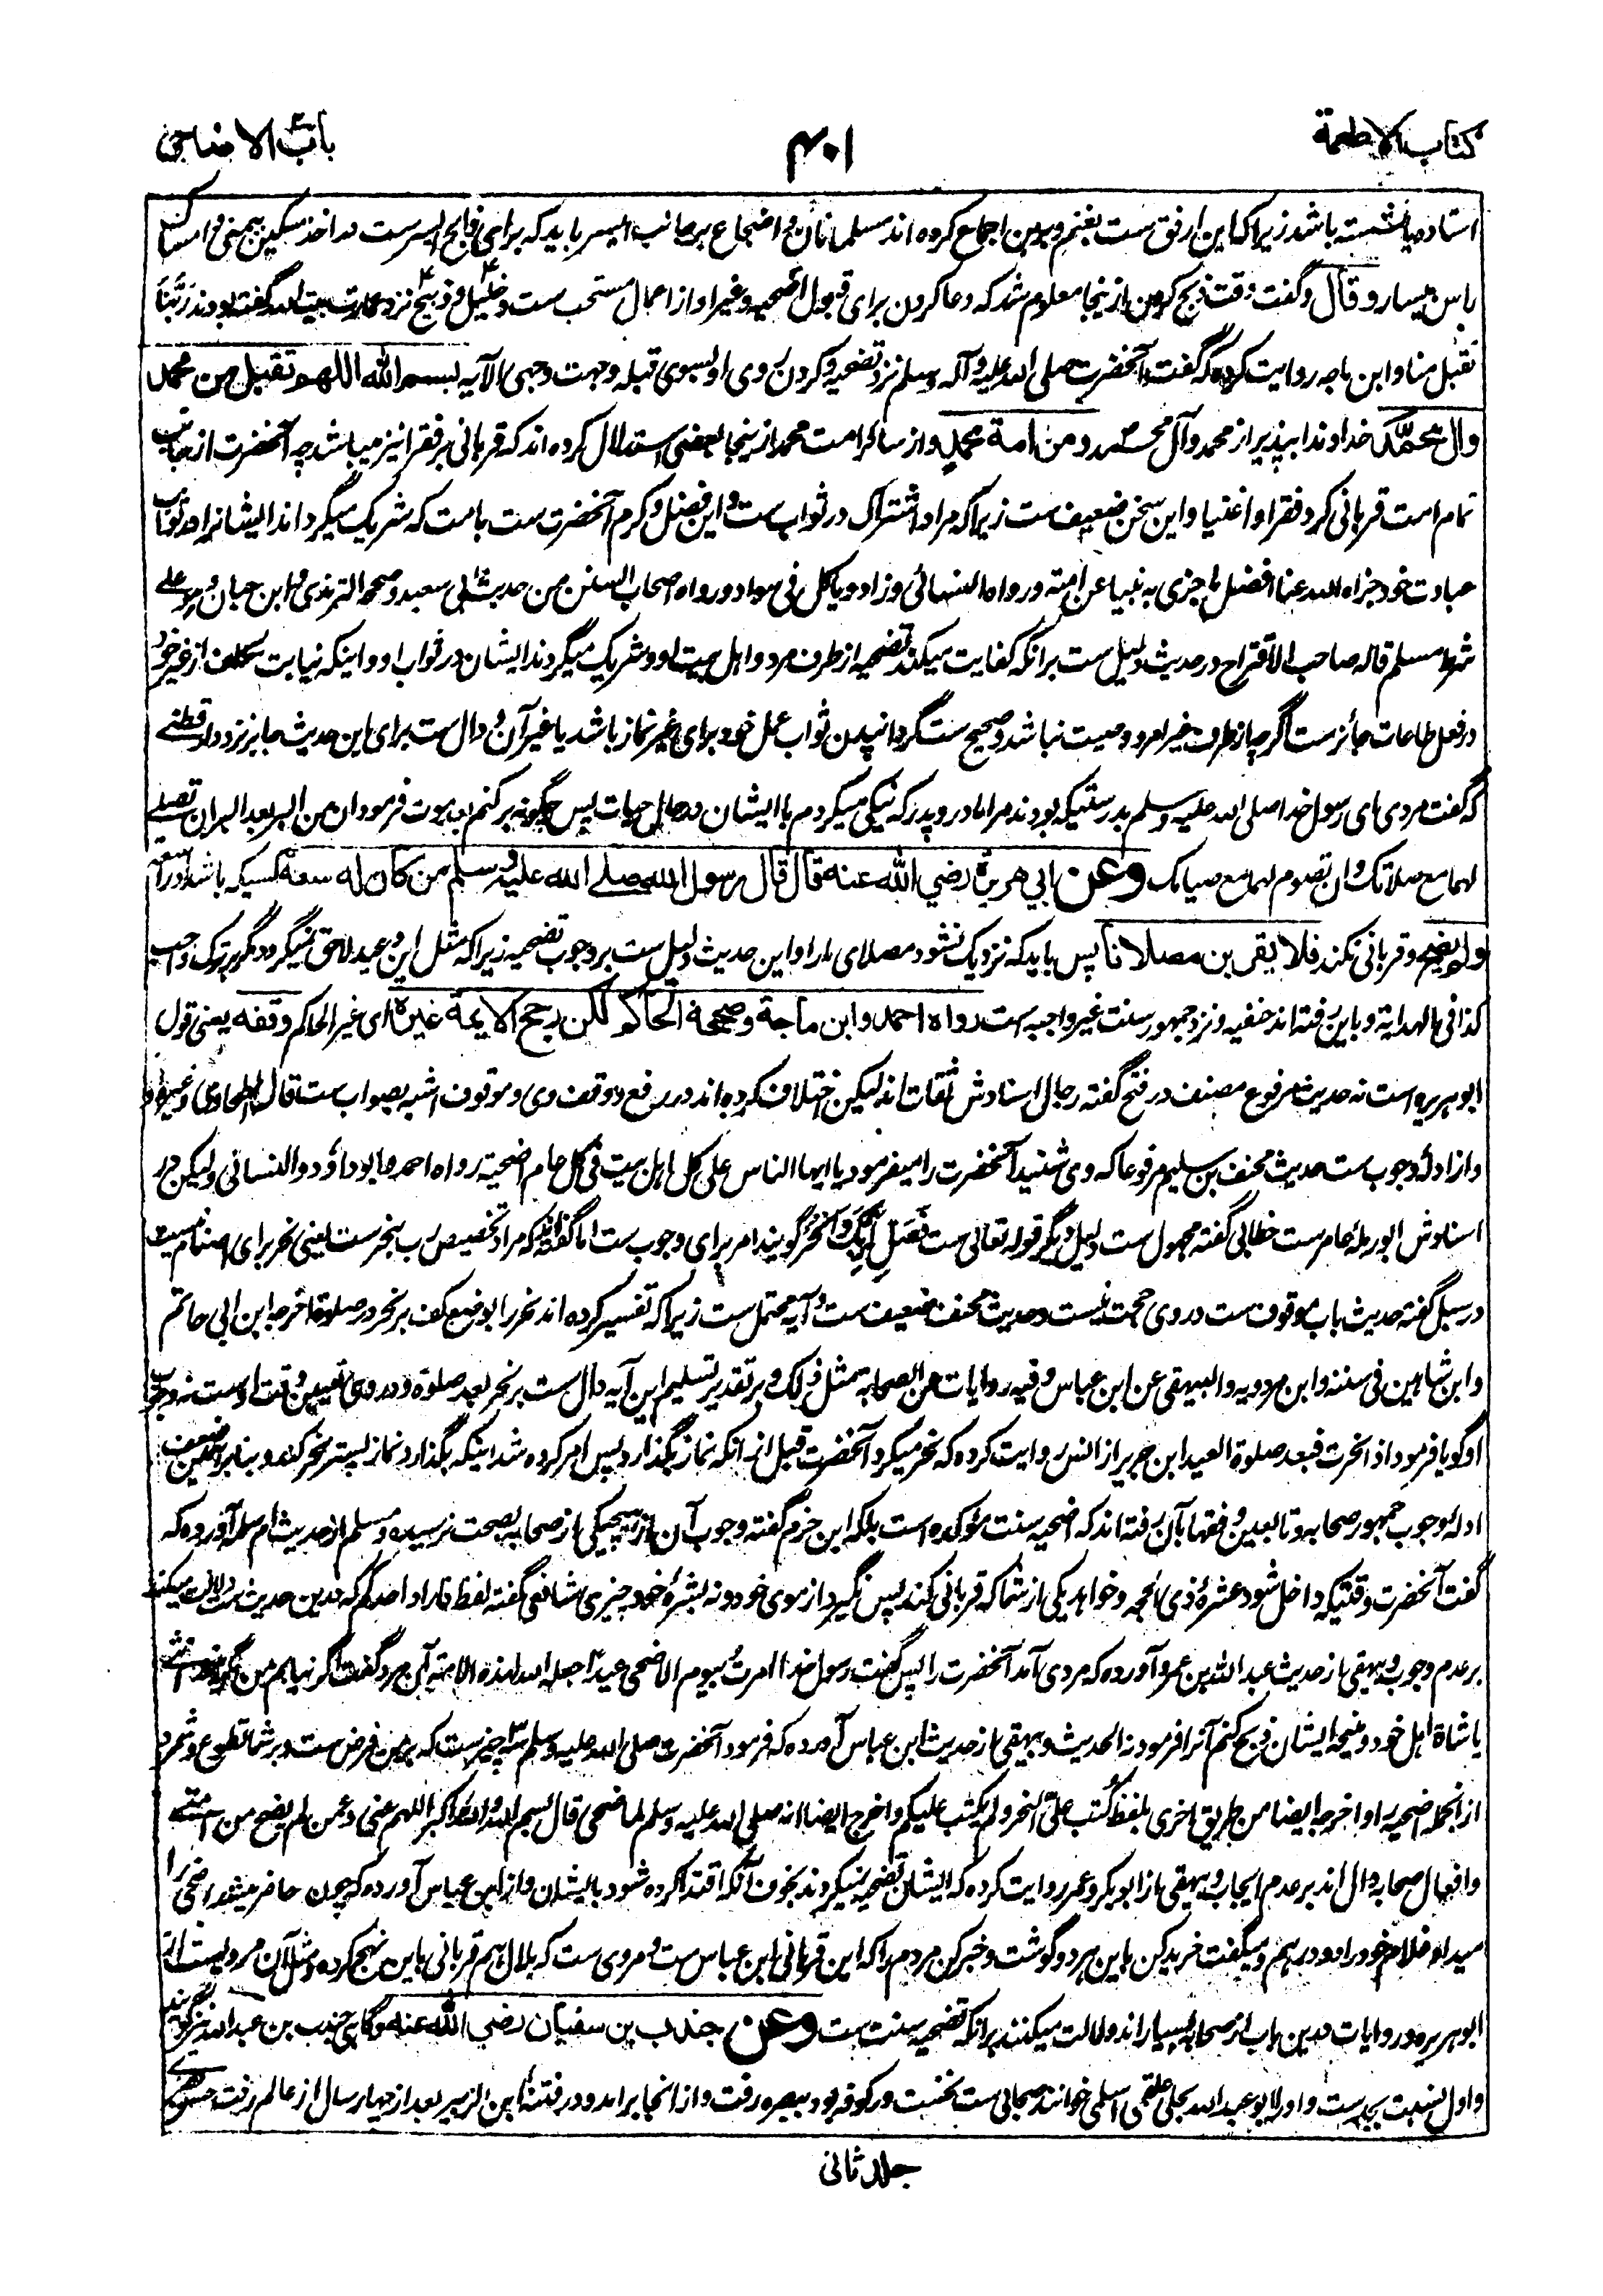 کتاب الاطعمة
۴۰۱
باب الاضاحی
استاده یا نشسته باشد زیرا که این ارفق ست بغنم و برین اجماع کرده اند مسلمانان و اضجاع بر جانب ایسر باید که برای ذابح ایسرست در اخذ سکین بیمنی و امساک
راس بیسار و قال و گفت وقت ذبح کردن ازینجا معلوم شد که دعا کردن برای قبول اضحیه و غیر او از اعمال مستحب ست و خلیل و ذبیح نزد عمارت بیت الله گفته بودند ربنا
تقبل منا و ابن ماجه روایت کرده که گفت آنحضرت صلی الله علیه و آله وسلم نزد تضحیه و کردن روی او بسوی قبله وجهت وجهی الآیه بسم الله اللهم تقبل من محمد
وال محمد خداوندا بپذیر از محمد و آل محمد ومن امة محمد و از سائر امت محمد ازینجا بعضی استدلال کرده اند که قربانی بر فقرا نیز میباشد چه آنحضرت از جانب
تمام امت قربانی کرد فقرا و اغنیا و این سخن ضعیف ست زیرا که مراد اشتراک در ثواب ست و این فضل و کرم آنحضرت ست بامت که شریک میگرداند ایشانرا در ثواب
عبادت خود جزاه الله عنا افضل ما جزی به نبیا عن امته ورواه النسائی وزاد ویاکل فی سواد ورواه اصحاب السنن من حدیث ابی سعید وصححه الترمذی وابن حبان وهو علی
شرط مسلم قاله صاحب الاقتراح در حدیث دلیل ست برانکه کفایت میکند تضحیه از طرف مرد و اهل بیت او و شریک میگردند ایشان در ثواب او و اینکه نیابت مکلف از غیر خود
در فعل طاعات جائز ست اگرچه از طرف غیر امر و وصیت نباشد و صحیح ست گردانیدن ثواب عمل خود برای غیر نماز باشد یا غیر آن و دال ست برای این حدیث جابر نزد دارقطنی
که گفت مردی ای رسول خدا صلی الله علیه وسلم بدرستیکه بودند مرا مادر و پدر که نیکی میکردم با ایشان در حال حیات پس چگونه بر کنم بعد موت فرمود ان من البر بعد البر ان تصلی
لهما مع صلاتک وان تصوم لهما مع صیامک وعن ابي هریرة رضي الله عنه قال قال رسول الله صلے الله علیه وسلم من کان له سعة کسیکه باشد او را سعة
ولم یضح و قربانی نکند فلا یقربن مصلانا پس باید که نزدیک نشود مصلای ما را و این حدیث دلیل ست بر وجوب تضحیه زیرا که مثل این وعید لاحق نمیگردد مگر بترک واجب
کذا فی الهدایة و باین رفته اند حنفیه و نزد جمهور سنت غیر واجبه ست رواه احمد وابن ماجة وصححه الحاکم لکن رجح الایمة غیره ای غیر الحاکم وقفه یعنی قول
ابوهریره است نه حدیث مرفوع مصنف در فتح گفته رجال اسنادش ثقات اند لیکن اختلاف کرده اند در رفع و وقف وی و موقوف اشبه بصواب ست قاله الطحاوی وغیره
و از ادلهٔ وجوب ست حدیث مخنف بن سلیم مرفوعا که وی شنید آنحضرت را میفرمود یا ایها الناس علی کل اهل بیت فی کل عام اضحیة رواه احمد وابوداود والنسائی ولیکن در
اسنادش ابورملهٔ عامر ست خطابی گفته مجهول ست دلیل دیگر قوله تعالی ست فصل لربک وانحر گویند امر برای وجوب ست اما گفته اند که مراد تخصیص رب بنحر ست یعنی نحر برای اصنام نیست
در سبل گفته حدیث باب موقوف ست در وی حجت نیست و حدیث مخنف ضعیف ست و آیه محتمل ست زیرا که تفسیر کرده اند نحر را بوضع کف بر نحر در صلوة اخرجه ابن ابی حاتم
وابن شاهین فی سننه وابن مردویه والبیهقی عن ابن عباس وفیه روایات عن الصحابة بمثل ذلک و بر تقدیر تسلیم این آیه دال ست بر نحر بعد صلوة و در وی تعیین وقت اوست نه وجوب
او گویا فرمود اذا نحرت فبعد صلوة العید ابن جریر از انس روایت کرده که نحر میکرد آنحضرت قبل از آنکه نماز بگذارد پس امر کرده شد اینکه بگذارد نماز پستر نحر کند و بنابر همین ضعف
ادلهٔ وجوب جمهور صحابه و تابعین و فقها بآن رفته اند که اضحیه سنت مؤکده است بلکه ابن حزم گفته وجوب آن از هیچیکی از صحابه بصحت نرسیده و مسلم از حدیث ام سلمه آورده که
گفت آنحضرت وقتیکه داخل شود عشرهٔ ذی الحجه و خواهد یکی از شما که قربانی کند پس نگیرد از موی خود و نه بشرهٔ خود چیزی شافعی گفته لفظ فاراد احدکم که درین حدیث ست دلالت میکند
بر عدم وجوب و بیهقی از حدیث عبدالله بن عمرو آورده که مردی آمد آنحضرت را پس گفت رسول خدا امرت بیوم الاضحی عیدا جعله الله لهذه الامة آن مرد گفت اگر نیابم من مگر
یا شاة اهل خود و منیحه ایشان ذبح کنم آنرا فرمود نه الحدیث و بیهقی از حدیث ابن عباس آورده که فرمود آنحضرت صلی الله علیه وسلم سه چیزست که بر من فرض ست و بر شما تطوع و شمرد
از انجمله اضحیه را و اخرجه ایضا من طریق اخری بلفظ کتب علی النحر ولم یکتب علیکم واخرج ایضا انه صلی الله علیه وسلم لما ضحی قال بسم الله والله اکبر اللهم عنی وعمن لم یضح من امتی
و افعال صحابه دال اند بر عدم ایجاب و بیهقی از ابوبکر و عمر روایت کرده که ایشان تضحیه نمیکردند بخوف آنکه اقتدا کرده شود بایشان و از ابن عباس آورده که چون حاضر میشد اضحی را
میداد غلام خود را دو درهم و میگفت خرید کن باین هر دو گوشت و خبر کن مردم را که این قربانی ابن عباس ست و مروی ست که بلال هم قربانی باین نهج کرده و مثل آن مرویست از
ابوهریره و روایات درین باب از صحابه بسیار اند دلالت میکنند برانکه تضحیه سنت ست وعن جندب بن سفیان رضي الله عنه و گاهی جندب بن عبدالله نیز گویند
و اول نسبت بجد ست و او را ابو عبدالله بجلی علقمی اسلمی خوانند صحابی ست نخست در کوفه بود ببصره رفت و از انجا برامد و در فتنهٔ ابن الزبیر بعد از چهار سال از عالم رفت
جلد ثانی